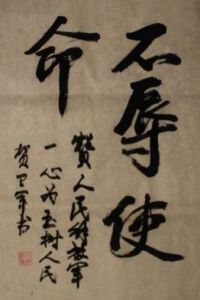 不辱使
命
赞人民解放军
一心为玉树人民
贺卫军书